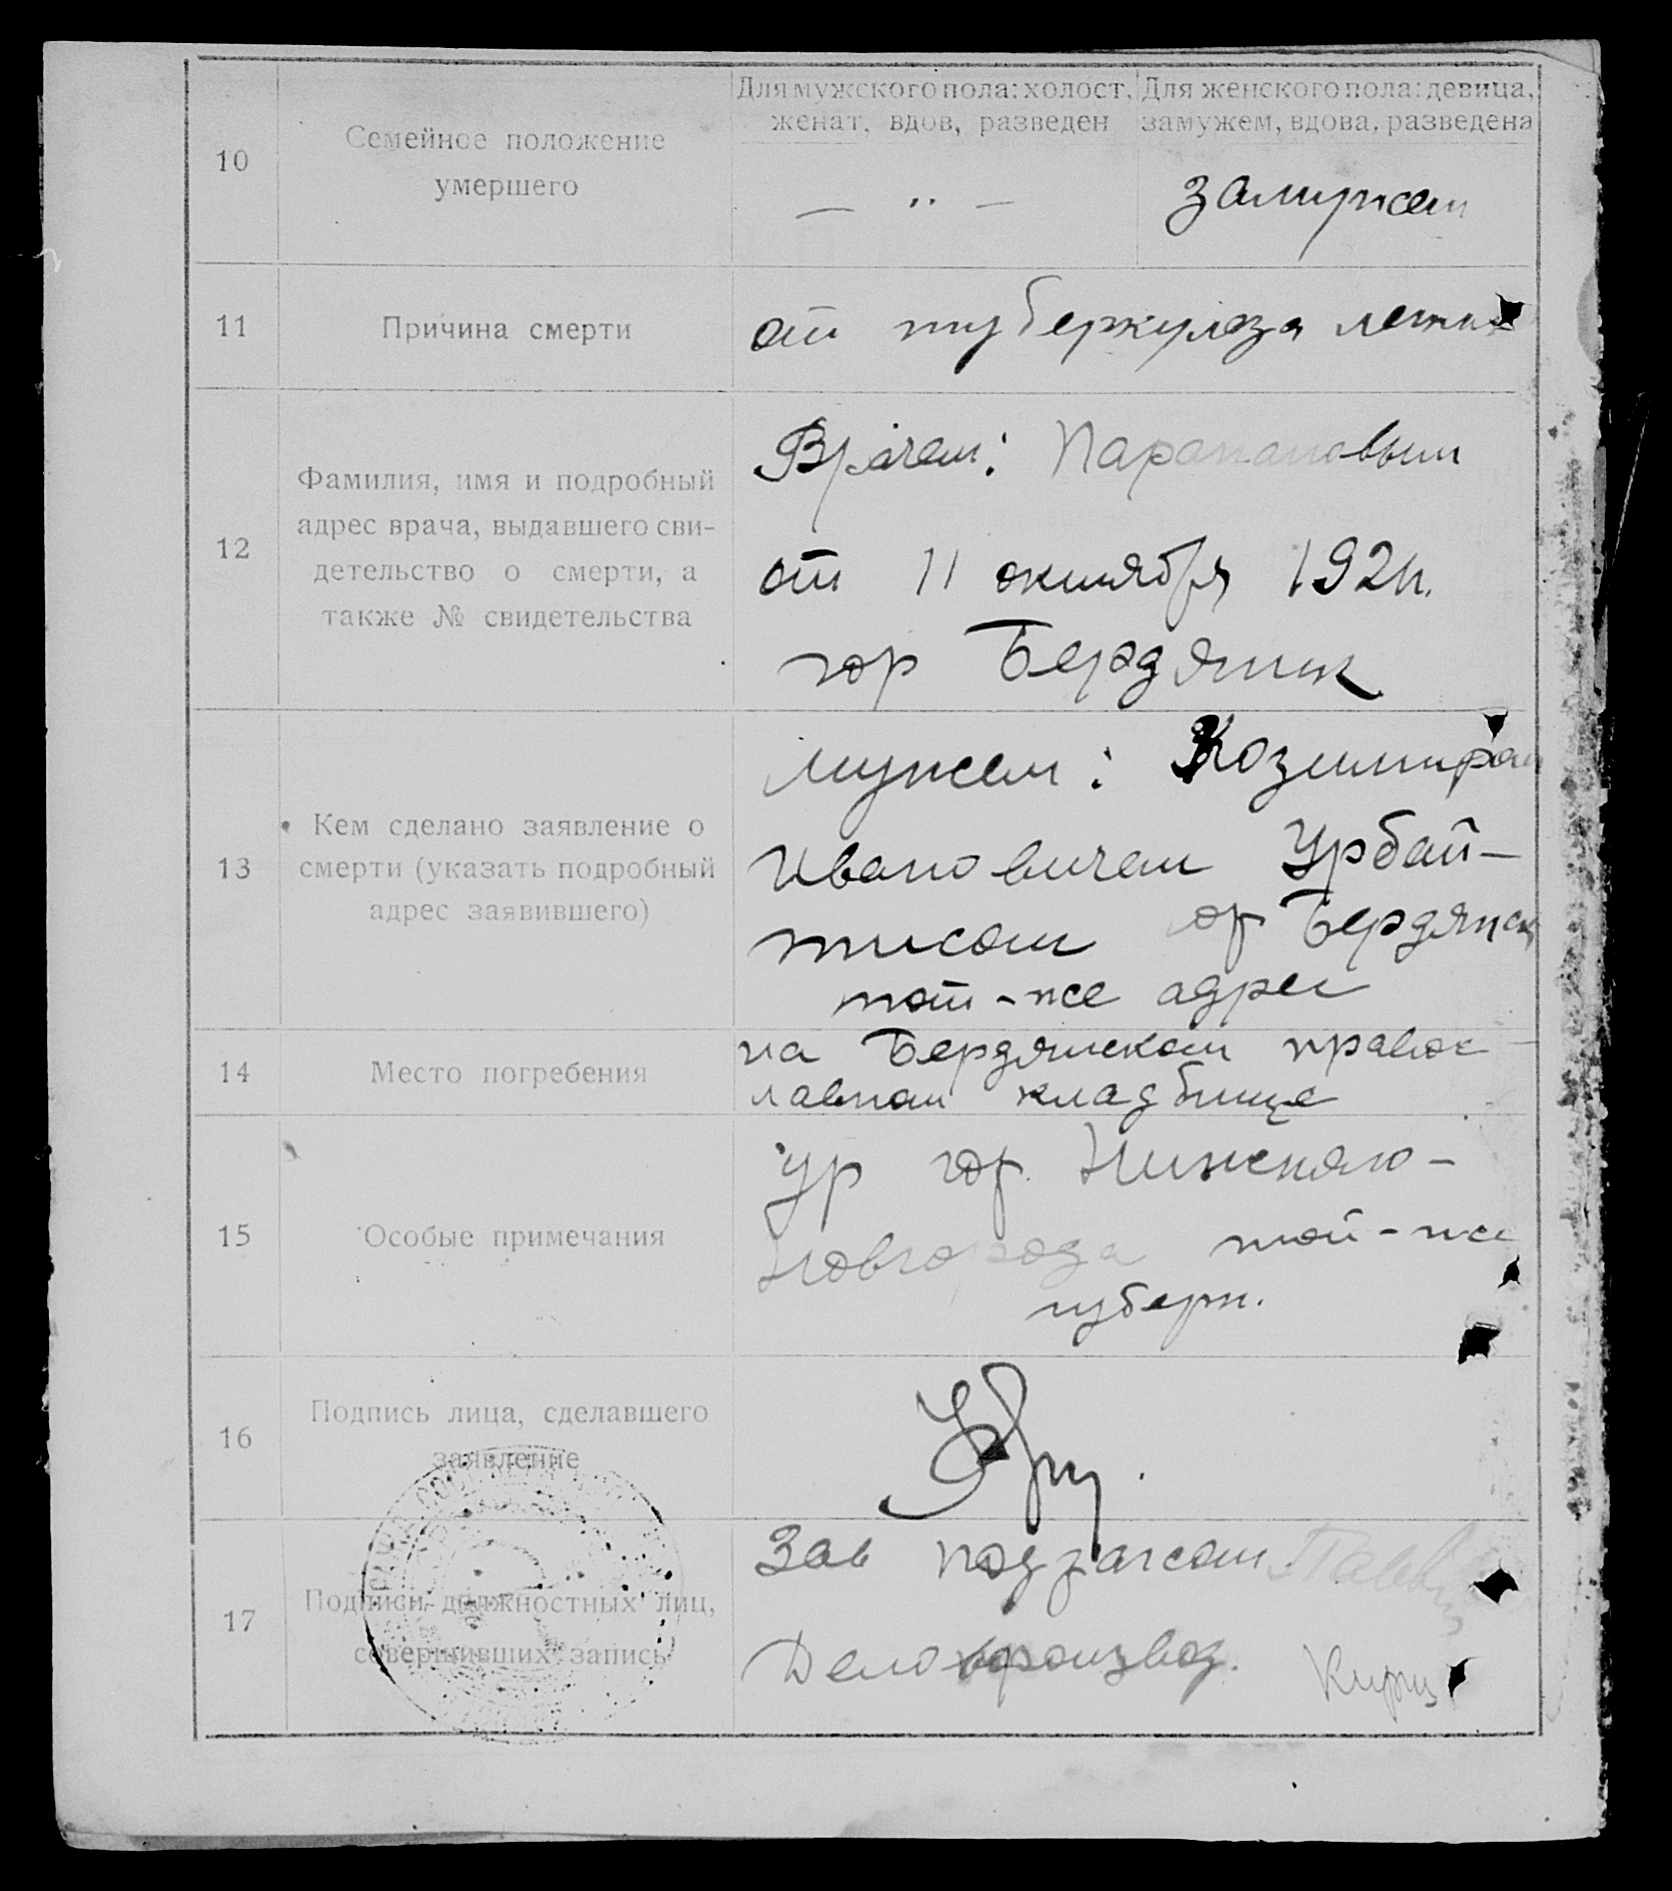 Для мужского пола: холост, женат, вдов, разведен
Для женского пола: девица, замужем, вдова, разведена
10
Семейное положение
умершего
— " —
замужем
11
Причина смерти
от туберкулеза легких
12
Фамилия, имя и подробный
адрес врача, выдавшего сви-
детельство о смерти, а
также № свидетельства
Врачем:
от 11 октября 192
гор Бердянск
13
Кем сделано заявление о
смерти (указать подробный
адрес заявившего)
мужем: Козимиром
Ивановичем Урбай-
тисом гор Бердянск
тот-же адрес
14
Место погребения
на Бердянском правос-
лавном кладбище
15
Особые примечания
ур гор. Нижняго-
Новгорода той-же
губерн.
16
Подпись лица, сделавшего
заявление
17
Подписи должностных лиц,
совершивших запись
Зав подзагсом
Делопроизвод.